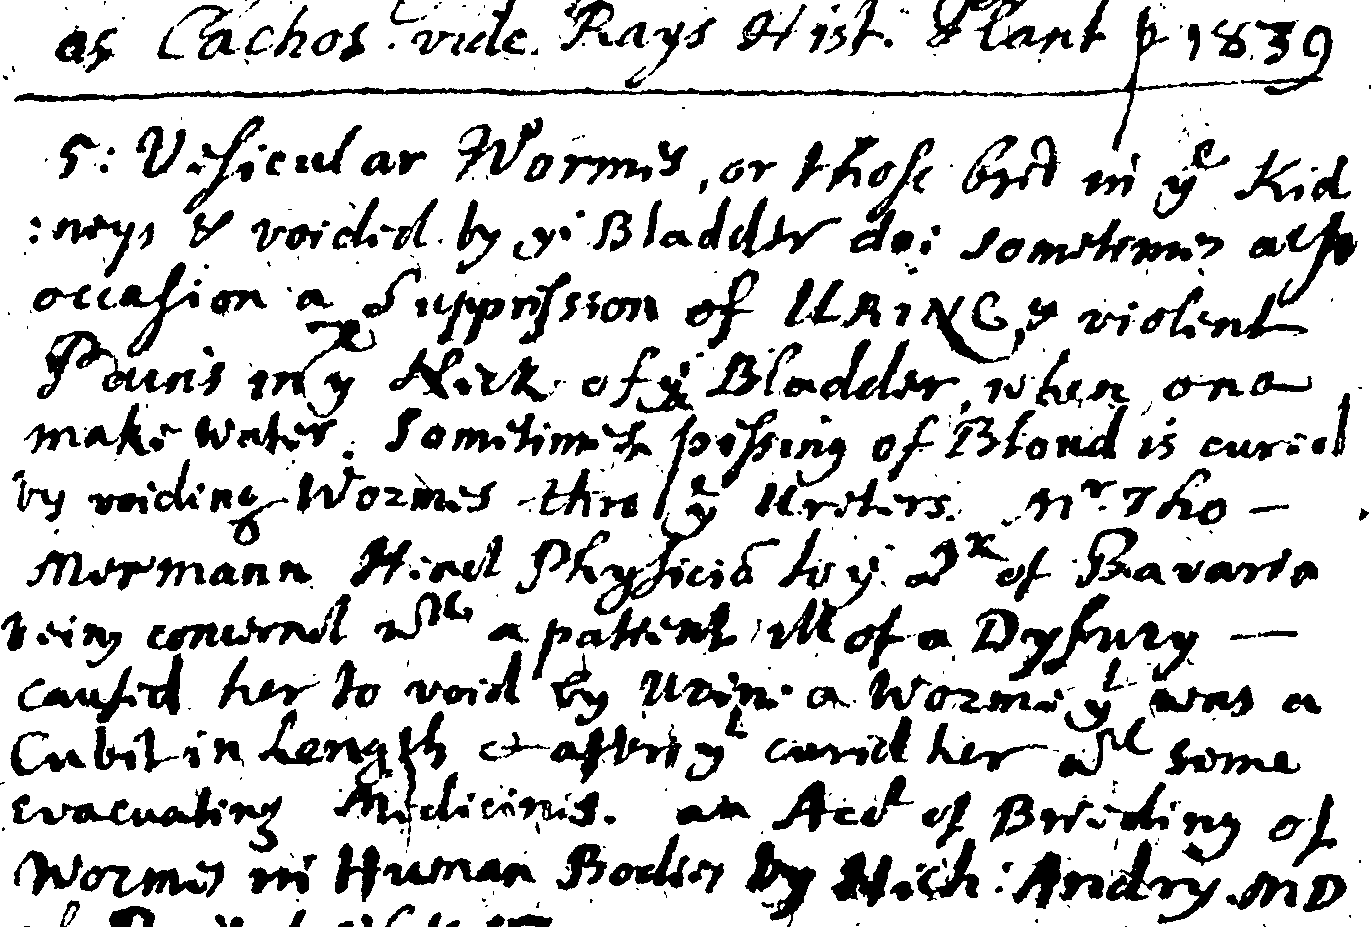 as Cachos. vide. Rays Hist. Plant p 1839
5: Vesicular Wormes, or those bred in ye Kid
:neys & voided by ye Bladder doe sometemes also
occasion a Suppression of URINE, & violent
Pains in ye Neck of ye Bladder, when one
make water. Sometimes pissing of Bloud is cured
by voiding Wormes thro ye Ureters. Mr. Tho —
Mermann Head Physiciā to ye Dk of Bavaria
being concernd wth a patient ill of a Dysury —
caused her to void by Urine a Worme yt was a
Cubit in Length & after yt cured her wth some
evacuating Medicines. an Acct of Breeding of
Wormes in Human Bodies by Nich: Andry. MD